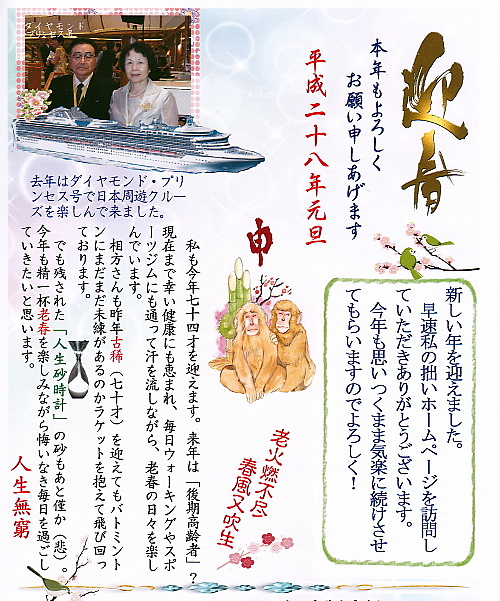 迎春
本年もよろしく
お願い申しあげます
平成二十八年元旦
新しい年を迎えました。
早速私の拙いホームページを訪問し
ていただきありがとうございます。
今年も思いつくまま気楽に続けさせ
てもらいますのでよろしく！
ダイヤモンド
プリンセス号
去年はダイヤモンド・プリ
ンセス号で日本周遊クルー
ズを楽しんで来ました。
申
老火燃不尽
春風又吹生
私も今年七十四才を迎えます。来年は「後期高齢者」？
現在まで幸い健康にも恵まれ、毎日ウォーキングやスポ
ーツジムにも通って汗を流しながら、老春の日々を楽し
んでいます。
相方さんも昨年古稀（七十才）を迎えてもバトミント
ンにまだまだ未練があるのかラケットを抱えて飛び回っ
ております。
でも残された「人生砂時計」の砂もあと僅か（悲）。
今年も精一杯老春を楽しみながら悔いなき毎日を過ごし
ていきたいと思います。
人生無窮